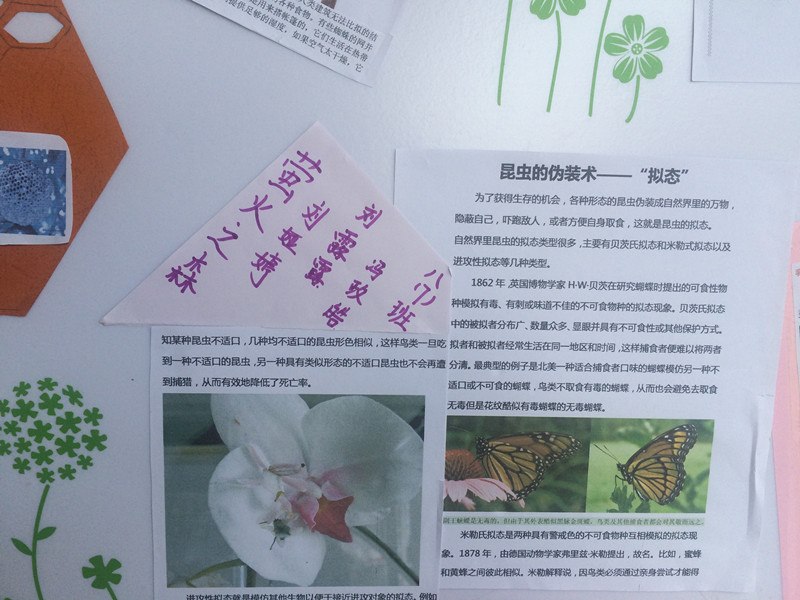 人类建筑无法比拟的结
各种食物。有些蜘蛛的网并
是用来搭帐蓬的，它们生活在热带
提供足够的湿度，如果空气太干燥，它
萤火之森
刘娅婷
刘露露
冯玫皓
八(7)班
昆虫的伪装术——“拟态”
为了获得生存的机会，各种形态的昆虫伪装成自然界里的万物，
隐蔽自己，吓跑敌人，或者方便自身取食，这就是昆虫的拟态。
自然界里昆虫的拟态类型很多，主要有贝茨氏拟态和米勒式拟态以及
进攻性拟态等几种类型。
1862年，英国博物学家H·W·贝茨在研究蝴蝶时提出的可食性物
种模拟有毒、有刺或味道不佳的不可食物种的拟态现象。贝茨氏拟态
中的被拟者分布广、数量众多、显眼并具有不可食性或其他保护方式。
拟者和被拟者经常生活在同一地区和时间，这样捕食者便难以将两者
分清。最典型的例子是北美一种适合捕食者口味的蝴蝶模仿另一种不
适口或不可食的蝴蝶，鸟类不取食有毒的蝴蝶，从而也会避免去取食
无毒但是花纹酷似有毒蝴蝶的无毒蝴蝶。
副王蛱蝶是无毒的，但由于其外表酷似黑脉金斑蝶，鸟类及其他捕食者都会对其敬而远之。
米勒氏拟态是两种具有警戒色的不可食物种互相模拟的拟态现
象。1878年，由德国动物学家弗里兹·米勒提出，故名。比如，蜜蜂
和黄蜂之间彼此相似。米勒解释说，因鸟类必须通过亲身尝试才能得
知某种昆虫不适口，几种均不适口的昆虫形色相似，这样鸟类一旦吃
到一种不适口的昆虫，另一种具有类似形态的不适口昆虫也不会再遭
到捕猎，从而有效地降低了死亡率。
进攻性拟态就是模仿其他生物以便于接近进攻对象的拟态。例如